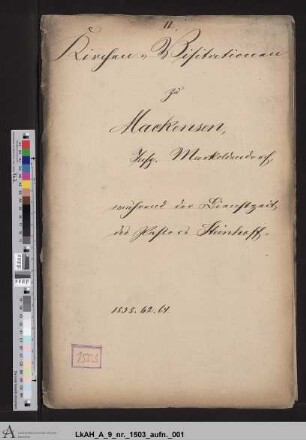 II.
Kirchen-Visitationen
zu
Mackensen,
Insp. Markoldendorf,
während der Dienstzeit
des Pastors
62. 64.
1503
LkAH_A_9_nr._1503_aufn._001